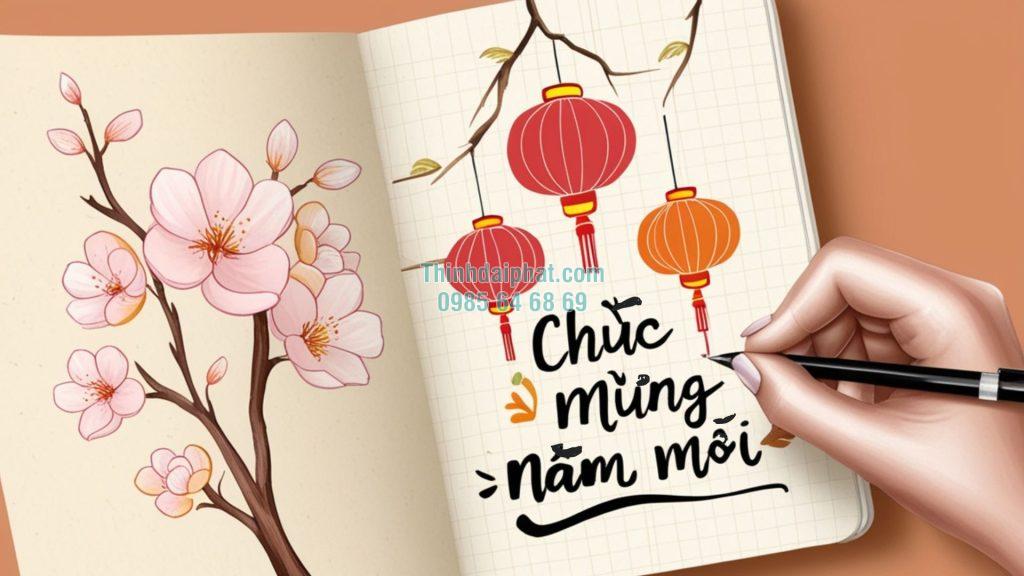 Thinhdaiphat.com
0985 64 68 69
Chúc
mừng
năm mới